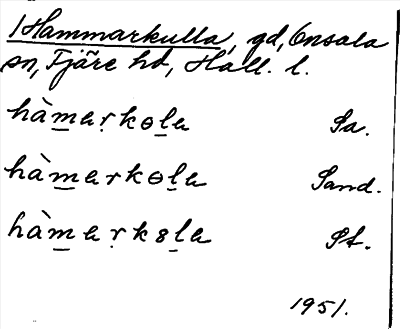 1 Hammarkulla, gd, Onsala
sn, Fjäre hd, Hall. l.
hàm̠aṛkɵl̠a Sa.
hàm̠arkɵl̠a Sand.
hàm̠aṛk8l̠a St.
1951.